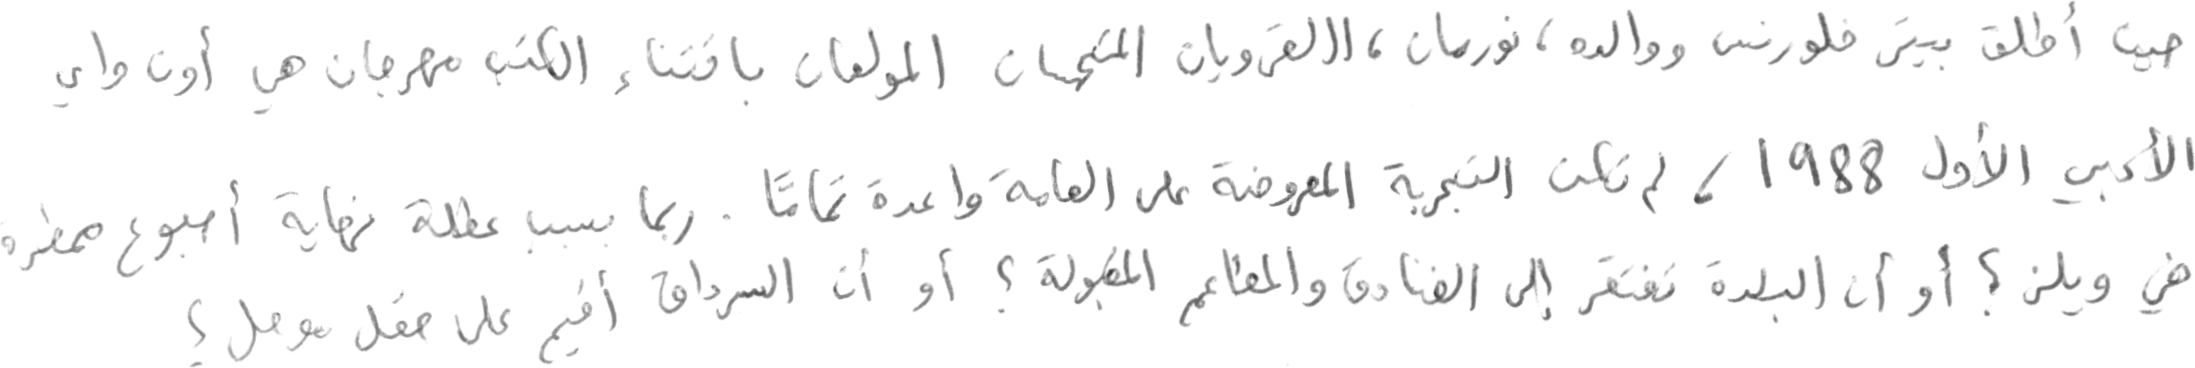 حين أطلق بيتر فلورنس ووالده، نورمان، القرويان المتحمسان المولعان باقتناء الكتب مهرجان هي أون واي
الأدبي الأول 1988، لم تكن التجربة المعروضة على العامة واعدة تمامًا. ربما بسبب عطلة نهاية أسبوع ممطرة
في ويلز؟ أو أن البلدة تفتقر إلى الفنادق والمطاعم المقبولة؟ أو أن السرداق أقيم على حقل موحل؟